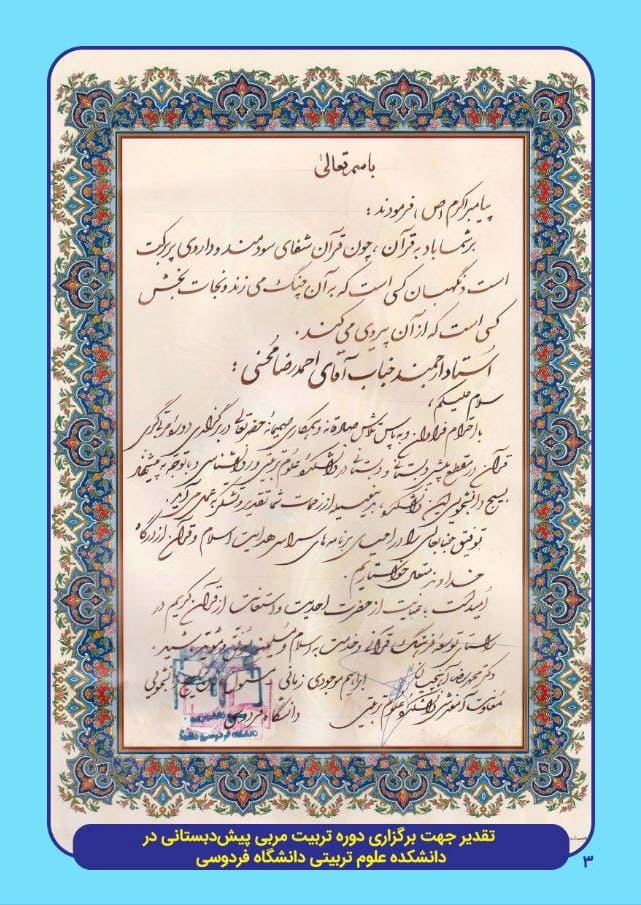 باسمه تعالی
پیامبر اکرم (ص) فرمودند :
بر شما باد به قرآن ، چون قرآن شفای سودمند و داروی پر برکت
است و نگهبان کسی است که به آن چنگ می زند و نجات بخش
کسی است که از آن پیروی می کند .
استاد ارجمند جناب آقای احمدرضا محسنی :
سلام علیکم ،
با احترام فراوان و به پاس تلاش صادقانه و همکاری صمیمانهٔ حضرتعالی در برگزاری دورهٔ مربیگری
قرآن در مقطع پیش دبستانی و دبستانی در دانشکدهٔ علوم تربیتی و روانشناسی و با توجه به پیشنهاد
بسیج دانشجویی این دانشکده، بدینوسیله از زحمات شما تقدیر و تشکر بعمل می آید.
توفیق جنابعالی را در احیای برنامه های سراسر هدایت اسلام و قرآن از درگاه
خداوند متعال خواستاریم .
امید است با عنایت از حضرت احدیت و استعانت از قرآن کریم در
راستای توسعهٔ فرهنگ قرآنی و خدمت به اسلام و مسلمین موفق و مؤید باشید .
دکتر محمودرضا ابراهیم موجودی زمانی مسئول بسیج دانشجویی
معاونت آموزشی دانشکدهٔ علوم تربیتی دانشگاه فردوسی
دانشگاه فردوسی مشهد
تقدیر جهت برگزاری دوره تربیت مربی پیش‌دبستانی در
دانشکده علوم تربیتی دانشگاه فردوسی
۳